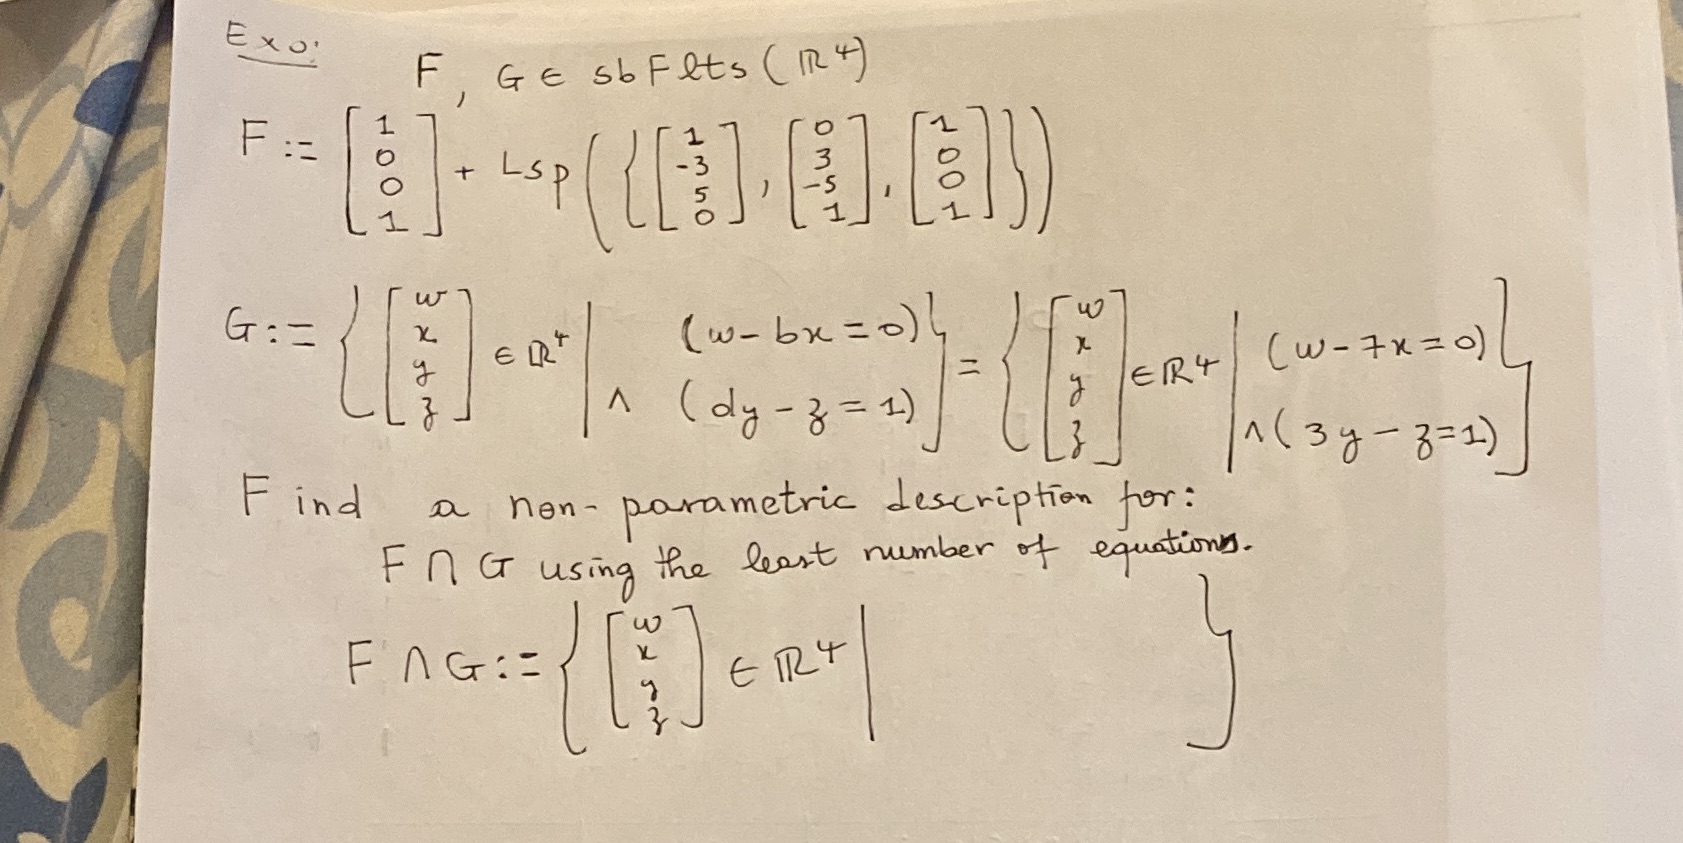 Exo:
F, G ∈ sbFlts(ℝ⁴)
F := [1 0 0 1] + Lsp({[1 -3 5 0], [0 3 -5 1], [1 0 0 1]})
G := {[w x y z] ∈ ℝ⁴ | (w - bx = 0) ∧ (dy - z = 1)} = {[w x y z] ∈ ℝ⁴ | (w - 7x = 0) ∧ (3y - z = 1)}
Find a non-parametric description for:
F ∩ G using the least number of equations.
F ∩ G := {[w x y z] ∈ ℝ⁴ | }